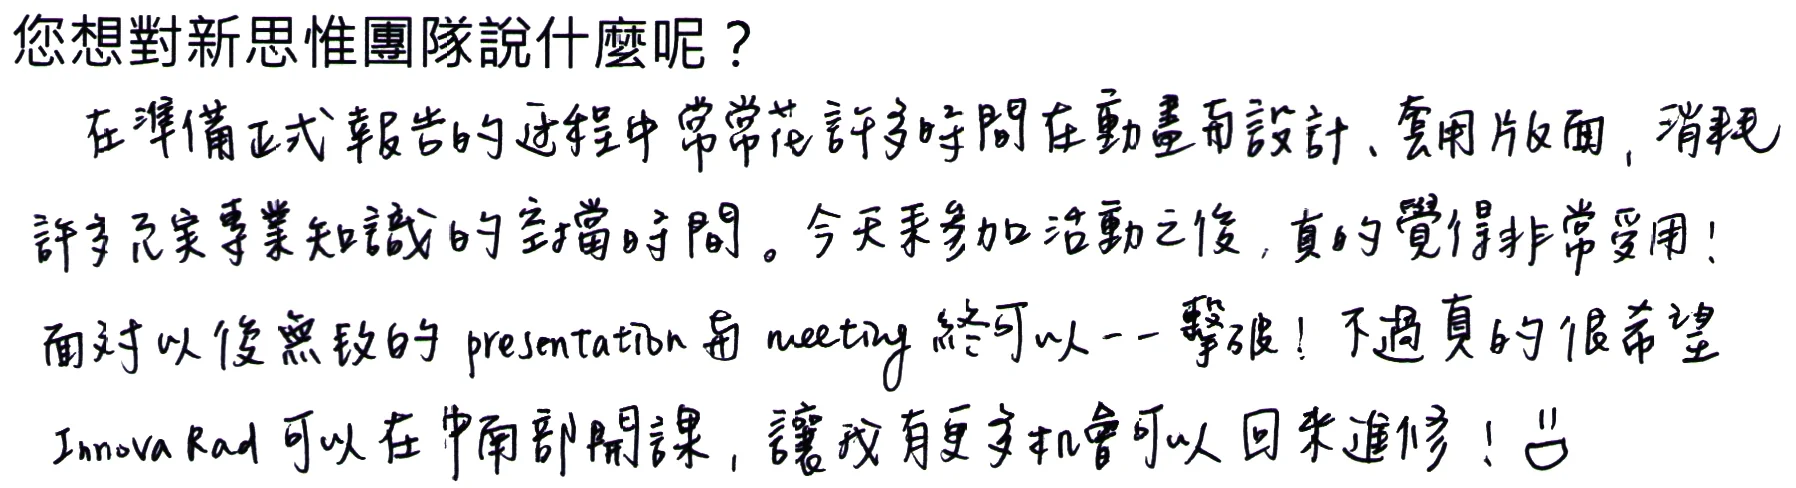 您想對新思惟團隊說什麼呢？
在準備正式報告的過程中常常花許多時間在動畫與設計、套用版面，消耗
許多充実專業知識的空擋時間。今天來參加活動之後，真的覺得非常受用！
面对以後無数的 presentation 與 meeting 終可以一一擊破！不過真的很希望
InnovaRad 可以在中南部開課，讓我有更多机會可以回來進修！